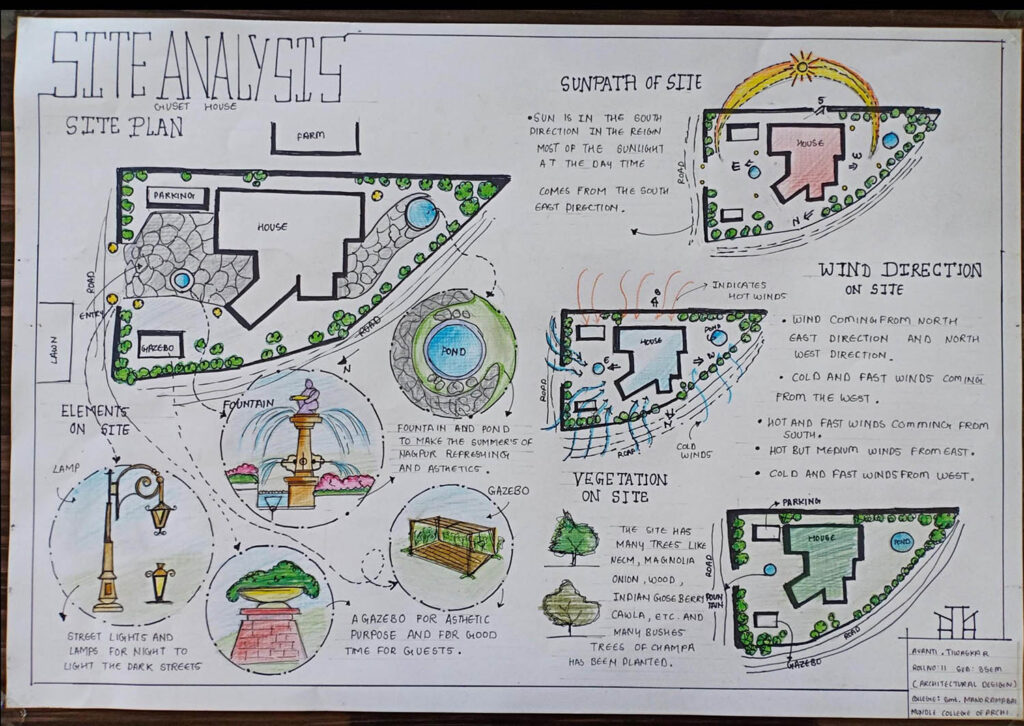 SITE ANALYSIS
GUSET HOUSE
SITE PLAN
FARM
PARKING
HOUSE
ROAD
ENTRY
LAWN
GAZEBO
ROAD
N
POND
ELEMENTS
ON SITE
LAMP
FOUNTAIN
FOUNTAIN AND POND
TO MAKE THE SUMMER'S OF
NAGPUR REFRESHING
AND ASTHETICS.
GAZEBO
STREET LIGHTS AND
LAMPS FOR NIGHT TO
LIGHT THE DARK STREETS
A GAZEBO FOR ASTHETIC
PURPOSE AND FOR GOOD
TIME FOR GUESTS.
SUNPATH OF SITE
• SUN IS IN THE SOUTH
DIRECTION IN THE REIGN
MOST OF THE SUNLIGHT
AT THE DAY TIME
COMES FROM THE SOUTH
EAST DIRECTION.
S
HOUSE
E
W
N
ROAD
WIND DIRECTION
ON SITE
INDICATES
HOT WINDS
S
HOUSE
POND
E
W
N
ROAD
ROAD
COLD
WINDS
• WIND COMING FROM NORTH
EAST DIRECTION AND NORTH
WEST DIRECTION.
• COLD AND FAST WINDS COMING
FROM THE WEST.
• HOT AND FAST WINDS COMMING FROM
SOUTH.
• HOT BUT MEDIUM WINDS FROM EAST.
• COLD AND FAST WINDS FROM WEST.
VEGETATION
ON SITE
THE SITE HAS
MANY TREES LIKE
NEEM, MAGNOLIA
ONION, WOOD,
INDIAN GOSEBERRY
CAWLA, ETC. AND
MANY BUSHES
TREES OF CHAMPA
HAS BEEN PLANTED.
PARKING
HOUSE
POND
ROAD
FOUNTAIN
GAZEBO
ROAD
AVANTI. TIWASKAR
ROLL NO: 11 SUB: 3SEM
(ARCHITECTURAL DESIGN)
COLLEGE: SMT. MANORAMABAI
MUNDLE COLLEGE OF ARCHI.